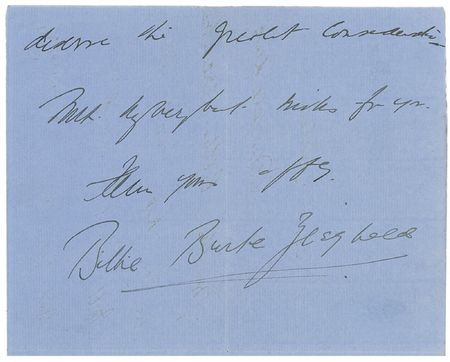 deserve the greatest consideration
With my very best wishes for you.
yours
Billie Burke Ziegfeld